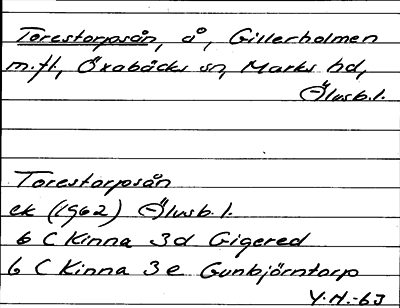 Torestorpsån, å, Gillerholmen
m.fl., Öxabäcks sn, Marks hd,
Älvsb.l.
Torestorpsån
ek (1962) Älvsb.l.
6 C Kinna 3d Gigered
6 C Kinna 3e Gunbjörntorp
Y.H.-63